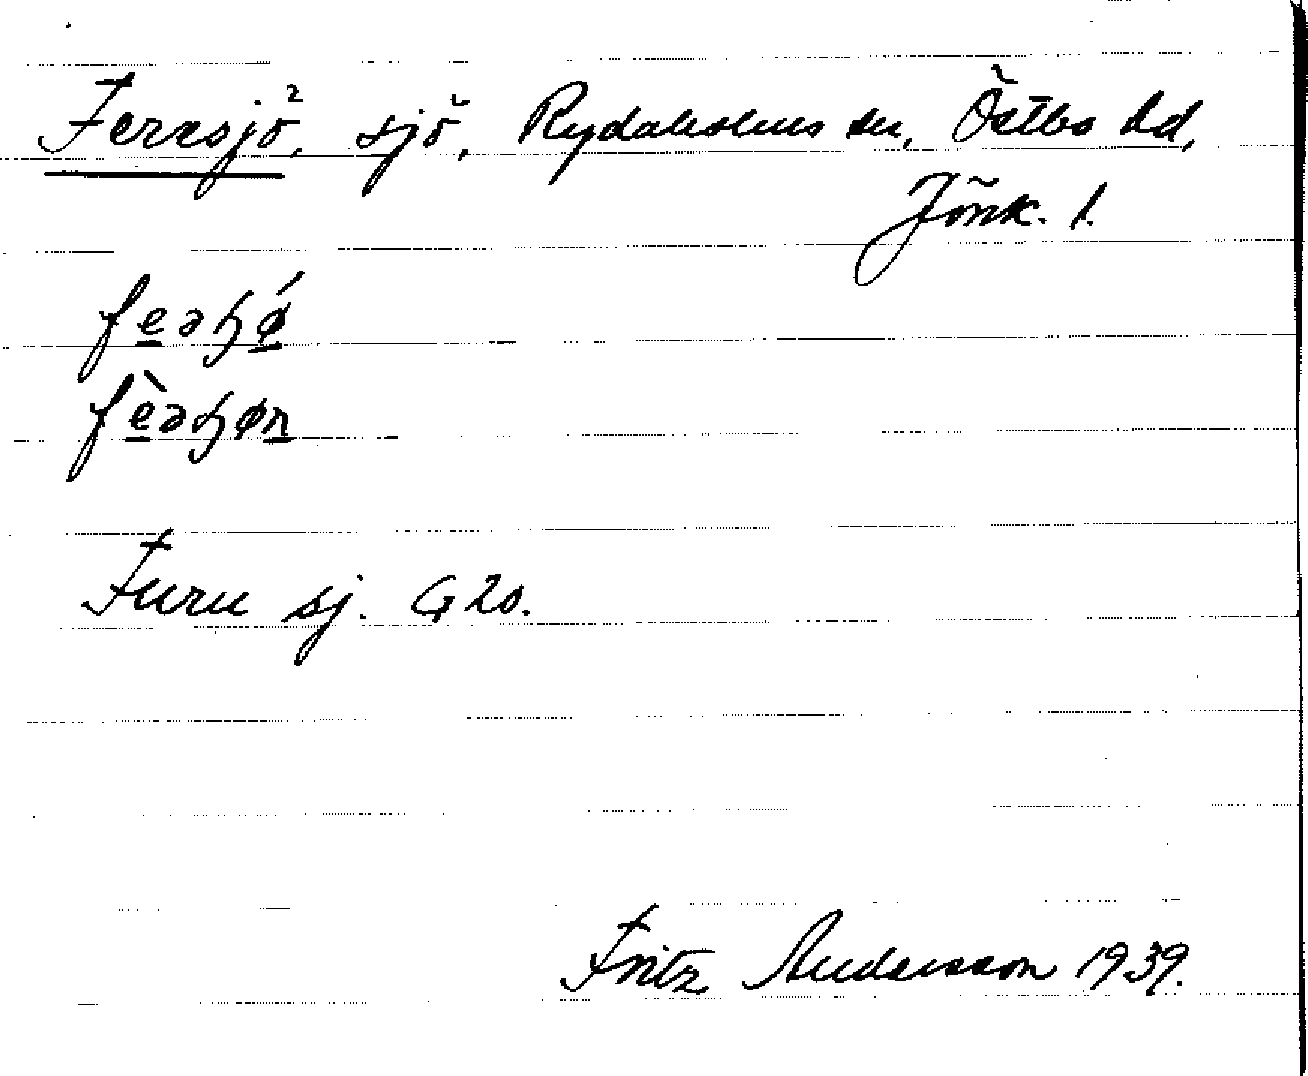 Fersjö², sjö, Rydaholms sn, Östbo hd,
Jönk. l.
Furu sj. G 20.
Fritz Andersson 1939.